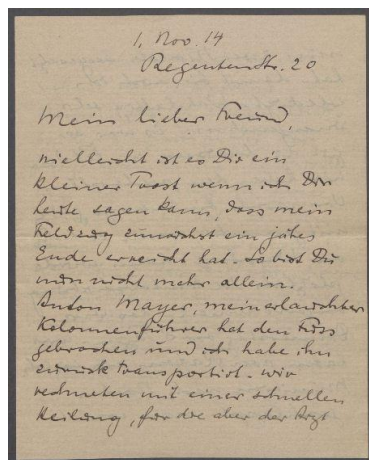 1. Nov. 14
Regentenstr. 20
Mein lieber Freund,
vielleicht ist es Dir ein
kleiner Trost wenn ich Dir
heute sagen kann, dass mein
Feldzug zunächst ein jähes
Ende erreicht hat. So bist Du
nun nicht mehr allein.
Anton Mayer, mein erlauchter
Kolonnenführer hat den Fuss
gebrochen und ich habe ihn
zurück transportirt. Wir
rechneten mit einer schnellen
Heilung, für die aber der Arzt